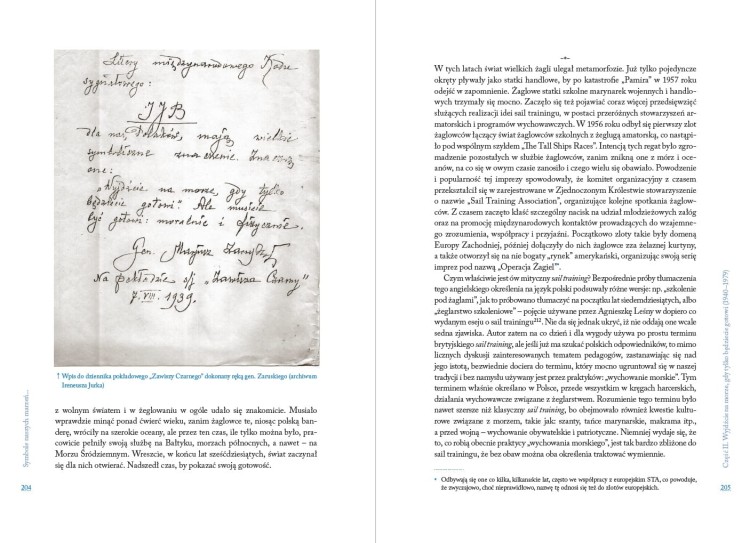 Litery międzynarodowego Kodu
sygnałowego:
IJB
dla nas, Polaków, mają wielkie
symboliczne znaczenie. Znaczą
one:
„Wyjdźcie na morze, gdy tylko
będziecie gotowi". Ale musicie
być gotowi: moralnie i fizycznie.
Gen. Mariusz Zaruski
Na pokładzie s/y „Zawisza Czarny"
7.VIII.1939.
↑ Wpis do dziennika pokładowego „Zawiszy Czarnego" dokonany ręką gen. Zaruskiego (archiwum
Ireneusza Jurka)
z wolnym światem i w żeglowaniu w ogóle udało się znakomicie. Musiało
wprawdzie minąć ponad ćwierć wieku, zanim żaglowce te, niosąc polską ban-
derę, wróciły na szerokie oceany, ale przez ten czas, ile tylko można było, pra-
cowicie pełniły swoją służbę na Bałtyku, morzach północnych, a nawet – na
Morzu Śródziemnym. Wreszcie, w końcu lat sześćdziesiątych, świat zaczynał
się dla nich otwierać. Nadszedł czas, by pokazać swoją gotowość.
Symbole naszych marzeń...
204
W tych latach świat wielkich żagli ulegał metamorfozie. Już tylko pojedyncze
okręty pływały jako statki handlowe, by po katastrofie „Pamira" w 1957 roku
odejść w zapomnienie. Żaglowe statki szkolne marynarek wojennych i handlo-
wych trzymały się mocno. Zaczęło się też pojawiać coraz więcej przedsięwzięć
służących realizacji idei sail training, w postaci przeróżnych stowarzyszeń ar-
matorskich i programów wychowawczych. W 1956 roku odbył się pierwszy zlot
żaglowców łączący świat żaglowców szkolnych z żeglugą amatorską, co nastąpi-
ło pod wspólnym szyldem „The Tall Ships Races". Intencją tych regat było zgro-
madzenie pozostałych w służbie żaglowców, zanim znikną one z mórz i oce-
anów, na co się w owym czasie zanosiło i czego wielu się obawiało. Powodzenie
i popularność tej imprezy spowodowały, że komitet organizacyjny z czasem
przekształcił się w zarejestrowane w Zjednoczonym Królestwie stowarzyszenie
o nazwie „Sail Training Association", organizujące kolejne spotkania żaglow-
ców. Z czasem zaczęto kłaść szczególny nacisk na udział młodzieżowych załóg
oraz na promocję międzynarodowych kontaktów prowadzących do wzajemne-
go zrozumienia, współpracy i przyjaźni. Początkowo zloty takie były domeną
Europy Zachodniej, później dołączyły do nich żaglowce zza żelaznej kurtyny,
a także otworzył się na nie bogaty „rynek" amerykański, organizując swoją serię
imprez pod nazwą „Operacja Żagiel"*.
Czym właściwie jest ów mityczny sail training? Bezpośrednie próby tłumaczenia
tego angielskiego określenia na język polski podsuwały różne wersje: np. „szkolenie
pod żaglami", jak to próbowano tłumaczyć na początku lat siedemdziesiątych, albo
„żeglarstwo szkoleniowe" – pojęcie używane przez Agnieszkę Leśny w dopiero co
wydanym eseju o sail trainingu²¹². Nie da się jednak ukryć, iż nie oddają one wcale
sedna zjawiska. Autor zatem na co dzień i dla wygody używa po prostu terminu
brytyjskiego sail training, ale jeśli już ma szukać polskich odpowiedników, to mimo
licznych dyskusji zainteresowanych tematem pedagogów, zastanawiając się nad
jego istotą, bezwiednie dociera do terminu, który mocno ugruntował się w naszej
tradycji i bez namysłu używany jest przez praktyków: „wychowanie morskie". Tym
terminem właśnie określano w Polsce, przede wszystkim w kręgach harcerskich,
działania wychowawcze związane z żeglarstwem. Rozumienie tego terminu było
nawet szersze niż klasyczny sail training, bo obejmowało również kwestie kultu-
rowe związane z morzem, takie jak: szanty, tańce marynarskie, makrama itp.,
a przed wojną – wychowanie obywatelskie i patriotyczne. Niemniej wydaje się, że
to, co robią obecnie praktycy „wychowania morskiego", jest tak bardzo zbliżone do
sail trainingu, że bez obaw można oba określenia traktować wymiennie.
* Odbywają się one co kilka, kilkanaście lat, często we współpracy z europejskim STA, co powoduje,
że zwyczajowo, choć nieprawidłowo, nazwę tę odnosi się też do zlotów europejskich.
Część II. Wyjdźcie na morze, gdy tylko będziecie gotowi (1940–1979)
205